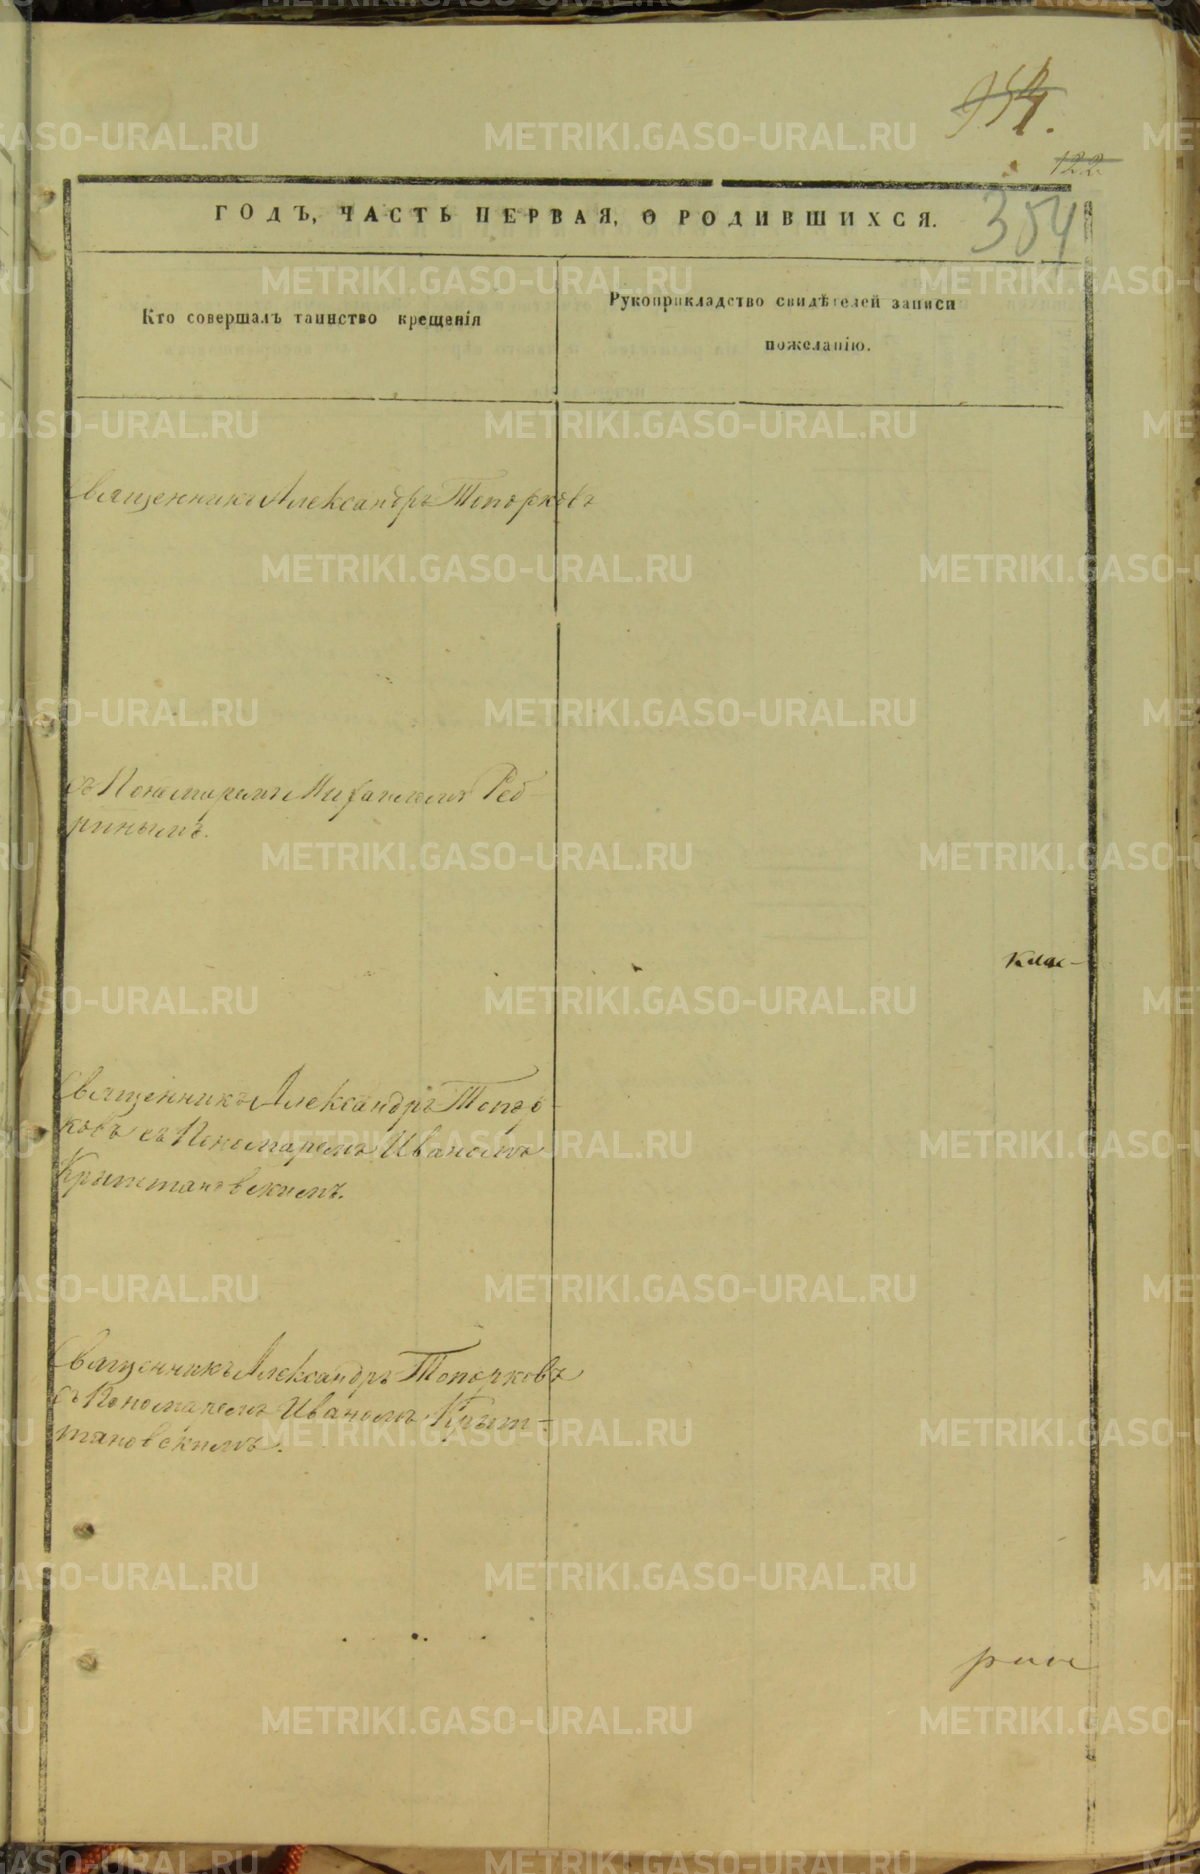 122
354
ГОДЪ, ЧАСТЬ ПЕРВАЯ, О РОДИВШИХСЯ.
Кто совершалъ таинство крещенія
Рукоприкладство свидѣтелей записи
пожеланію.
Священникъ Александръ Топорковъ
съ Пономаремъ Михаиломъ Реб-
ринымъ.
Священникъ Александръ Топор-
ковъ съ Пономаремъ Иваномъ
Крыштановскимъ.
Священникъ Александръ Топорковъ
съ Пономаремъ Иваномъ Крыш-
тановскимъ.
METRIKI.GASO-URAL.RU